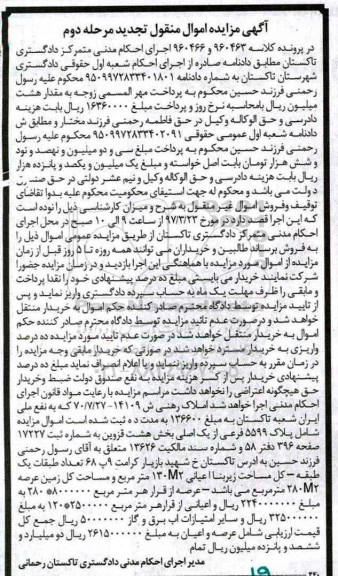 آگهی مزایده اموال منقول تجدید مرحله دوم
در پرونده کلاسه ۹۶۰۴۶۳ و ۹۶۰۴۶۶ اجرای احکام مدنی متمرکز دادگستری
تاکستان مطابق دادنامه صادره از اجرای احکام شعبه اول حقوقی دادگستری
شهرستان تاکستان به شماره دادنامه ۹۵۰۹۹۷۲۸۳۳۴۰۱۸۰۱ محکوم علیه رسول
رحمنی فرزند حسین محکوم به پرداخت مهر المسمی زوجه به مقدار هشت
میلیون ریال بامحاسبه نرخ روز و پرداخت مبلغ ۱۶۳۶۰۰۰۰ ریال بابت هزینه
دادرسی و حق الوکاله وکیل در حق فاطمه رحمنی فرزند مختار و مطابق ش
دادنامه شعبه اول عمومی حقوقی ۹۵۰۹۹۷۲۸۳۳۴۰۲۰۹۱ محکوم علیه رسول
رحمنی فرزند حسین محکوم به پرداخت مبلغ سی و دو میلیون و نهصد و نود
و شش هزار تومان بابت اصل خواسته و مبلغ یک میلیون و یکصد و پانزده هزار
ریال بابت هزینه دادرسی و حق الوکاله وکیل و نیم عشر دولتی در حق صندوق
دولت می باشد و محکوم له جهت استیفای محکومیت محکوم علیه بدوا تقاضای
توقیف وفروش اموال غیر منقول به شرح و میزان کارشناسی ذیل را نوده است
که این اجرا قصد دارد در مورخ ۹۷/۳/۲۳ از ساعت ۹ الی ۱۰ صبح در محل اجرای
احکام مدنی متمرکز دادگستری تاکستان از طریق مزایده عمومی اموال ذیل را
به فروش برساند طالبین و خریداران می توانند همه روزه تا ۵ روز قبل از زمان
مزایده از اموال مورد مزایده با هماهنگی این اجرا بازدید و در زمان مزایده حضورا
شرکت نمایند خریدار می بایستی مبلغ ده درصد پیشنهادی خود را نقدا پرداخت
و مابقی را ظرف مهلت یک ماه به حساب سپرده دادگستری واریز نماید و پس
از تایید مزایده توسط دادگاه محترم صادر کننده حکم اموال به خریدار منتقل
خواهد شد و درصورت عدم تائید مزایده توسط دادگاه محترم صادر کننده حکم
اموال به خریدار منتقل خواهد شد در صورت عدم تایید مورد مزایده ده درصد
واریزی به خریدار مسترد خواهد شد در صورتی که خریدار مابقی وجه مزایده را
در زمان مقرر به حساب سپرده واریز ننماید و یا اعلام انصراف نماید مبلغ ده درصد
پیشنهادی خریدار پس از کسر هزینه مزایده به نفع صندوق دولت ضبط وخریدار
حق هیچگونه اعتراضی را نخواهد داشت مراسم مزایده با رعایت مواد قانون اجرای
احکام مدنی اجرا خواهد شد املاک رهنی ش ۱۴۱۰۹ - ۷۰/۷/۲۷ که به نفع ملی
ایران شعبه تاکستان به مبلغ ۱۳۶۶۰۰ به مدت ده ثبت شده است اموال مزایده
شامل پلاک ۵۵۹۹ فرعی از یک اصلی بخش هشت قزوین به شماره ثبت ۱۷۲۲۷
صفحه ۳۹۶ دفتر ۵۸ و شماره سند مالکیت ۱۳۶۲۶ متعلق به آقای رسول رحمنی
فرزند حسین به ادرس تاکستان خ شهید بازیار کرامت ۹ پ ۶۸ تعداد طبقات یک
طبقه – کل مساحت زیربنا اعیانی ۱۳۰M۲ متر مربع و مساحت کل زمین عرصه
۲۸۰M۲ مترمربع می باشد – عرصه از قرار هر متر مربع ۸۰۰۰۰۰۰ * ۲۸۰ به
مبلغ ۲۲۴۰۰۰۰۰۰۰ ریال و اعیانی از قرار هر متر مربع ۲۵۰۰۰۰۰ * ۱۳۰ به مبلغ
۳۲۵۰۰۰۰۰۰ ریال و سایر امتیازات اب برق و گاز ۵۰۰۰۰۰۰۰ ریال جمع کل
قیمت ارزیابی شامل عرصه و اعیان به مبلغ ۲۶۱۵۰۰۰۰۰۰ ریال دو میلیارد و
ششصد و پانزده میلیون ریال تمام
مدیر اجرای احکام مدنی دادگستری تاکستان رحمانی